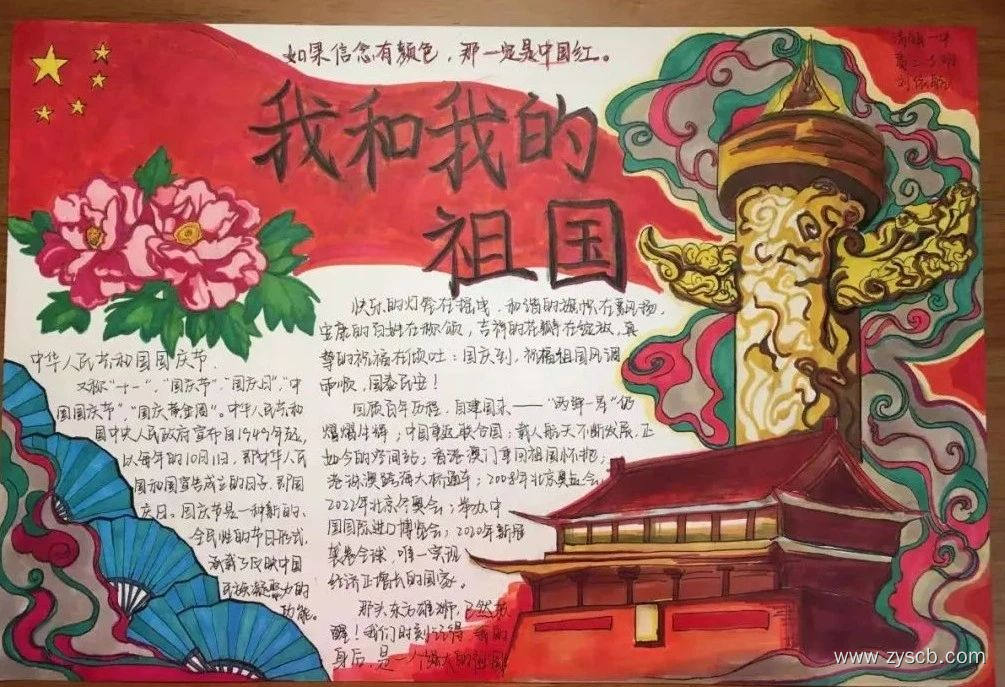 如果信念有颜色，那一定是中国红。
我和我的
祖国
快乐的灯笼在摇曳，和谐的旗帜在飘扬，
安康的百姓在欢颂，吉祥的花瓣在绽放，真
挚的祝福在倾吐：国庆到，祈福祖国风调
雨顺，国泰民安！
回顾百年历程，自建国来——"两弹一星"仍
熠熠生辉；中国重返联合国；载人航天不断发展，正
如今的空间站；香港澳门重回祖国怀抱；
港珠澳跨海大桥通车；2008年北京奥运会，
2022年北京冬奥会；举办中
国国际进口博览会；2020年新冠
袭卷全球，唯一实现
经济正增长的国家。
那头东方雄狮，已然苏
醒！我们时刻记得，我的
身后，是一个强大的祖国
中华人民共和国国庆节
又称"十一"、"国庆节"、"国庆日"、"中
国国庆节"、"国庆黄金周"。中华人民共和
国中央人民政府宣布自1949年起，
以每年的10月1日，即中华人民
共和国宣告成立的日子，即国
庆日。国庆节是一种新的、
全民性的节日形式，
承载了反映中国
民族凝聚力的
功能。
www.zyscb.com